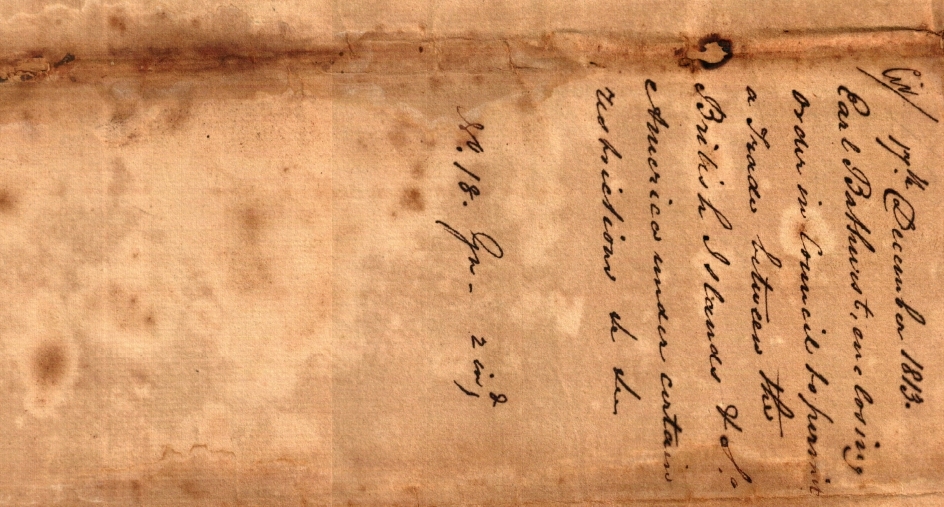 Cir/ 17th. December 1813.
Earl Bathurst, enclosing
order in Council to permit
a Trade between the
British Islands & So.
America under certain
restrictions &c &c.
No. 18.